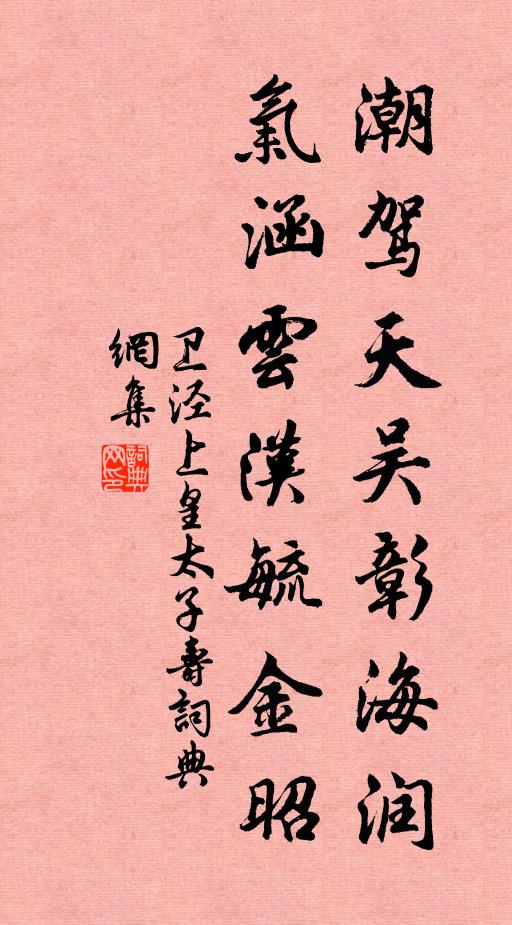 潮驾天吴彰海润
氣涵雲漢毓金昭
卫泾上皇太子壽詞典
網集
詞典網印